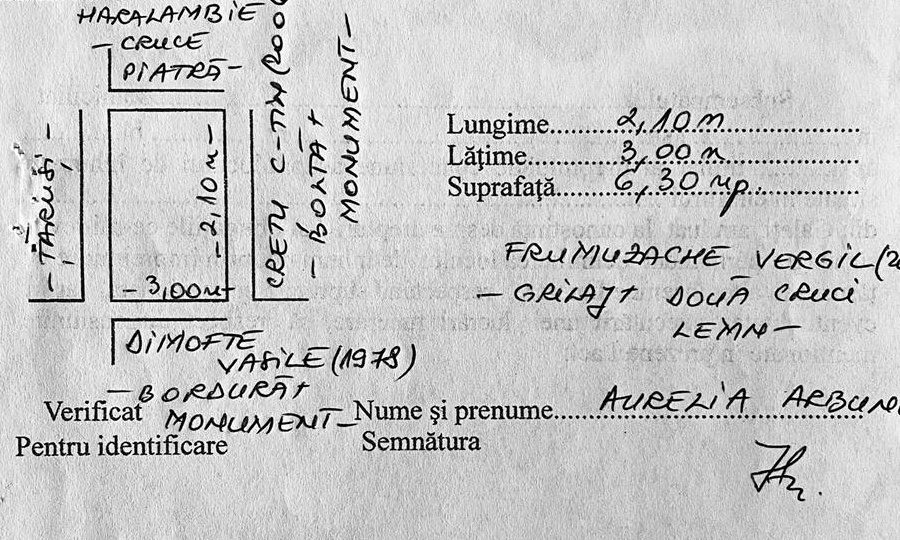 HARALAMBIE
– CRUCE
PIATRĂ –
– ȚĂRUȘI –
– 2,10 m –
– 3,00 m
CREȚU C-TIN (200
– BOLTĂ +
MONUMENT –
Lungime........2,10 m........
Lățime........3,00 m........
Suprafață........6,30 mp........
FRUMUZACHE VERGIL (2
– GRILAJ + DOUĂ CRUCI
LEMN –
DIMOFTE
VASILE (1978)
– BORDURĂ +
MONUMENT –
Verificat
Pentru identificare
Nume și prenume........AURELIA ARBUN
Semnătura